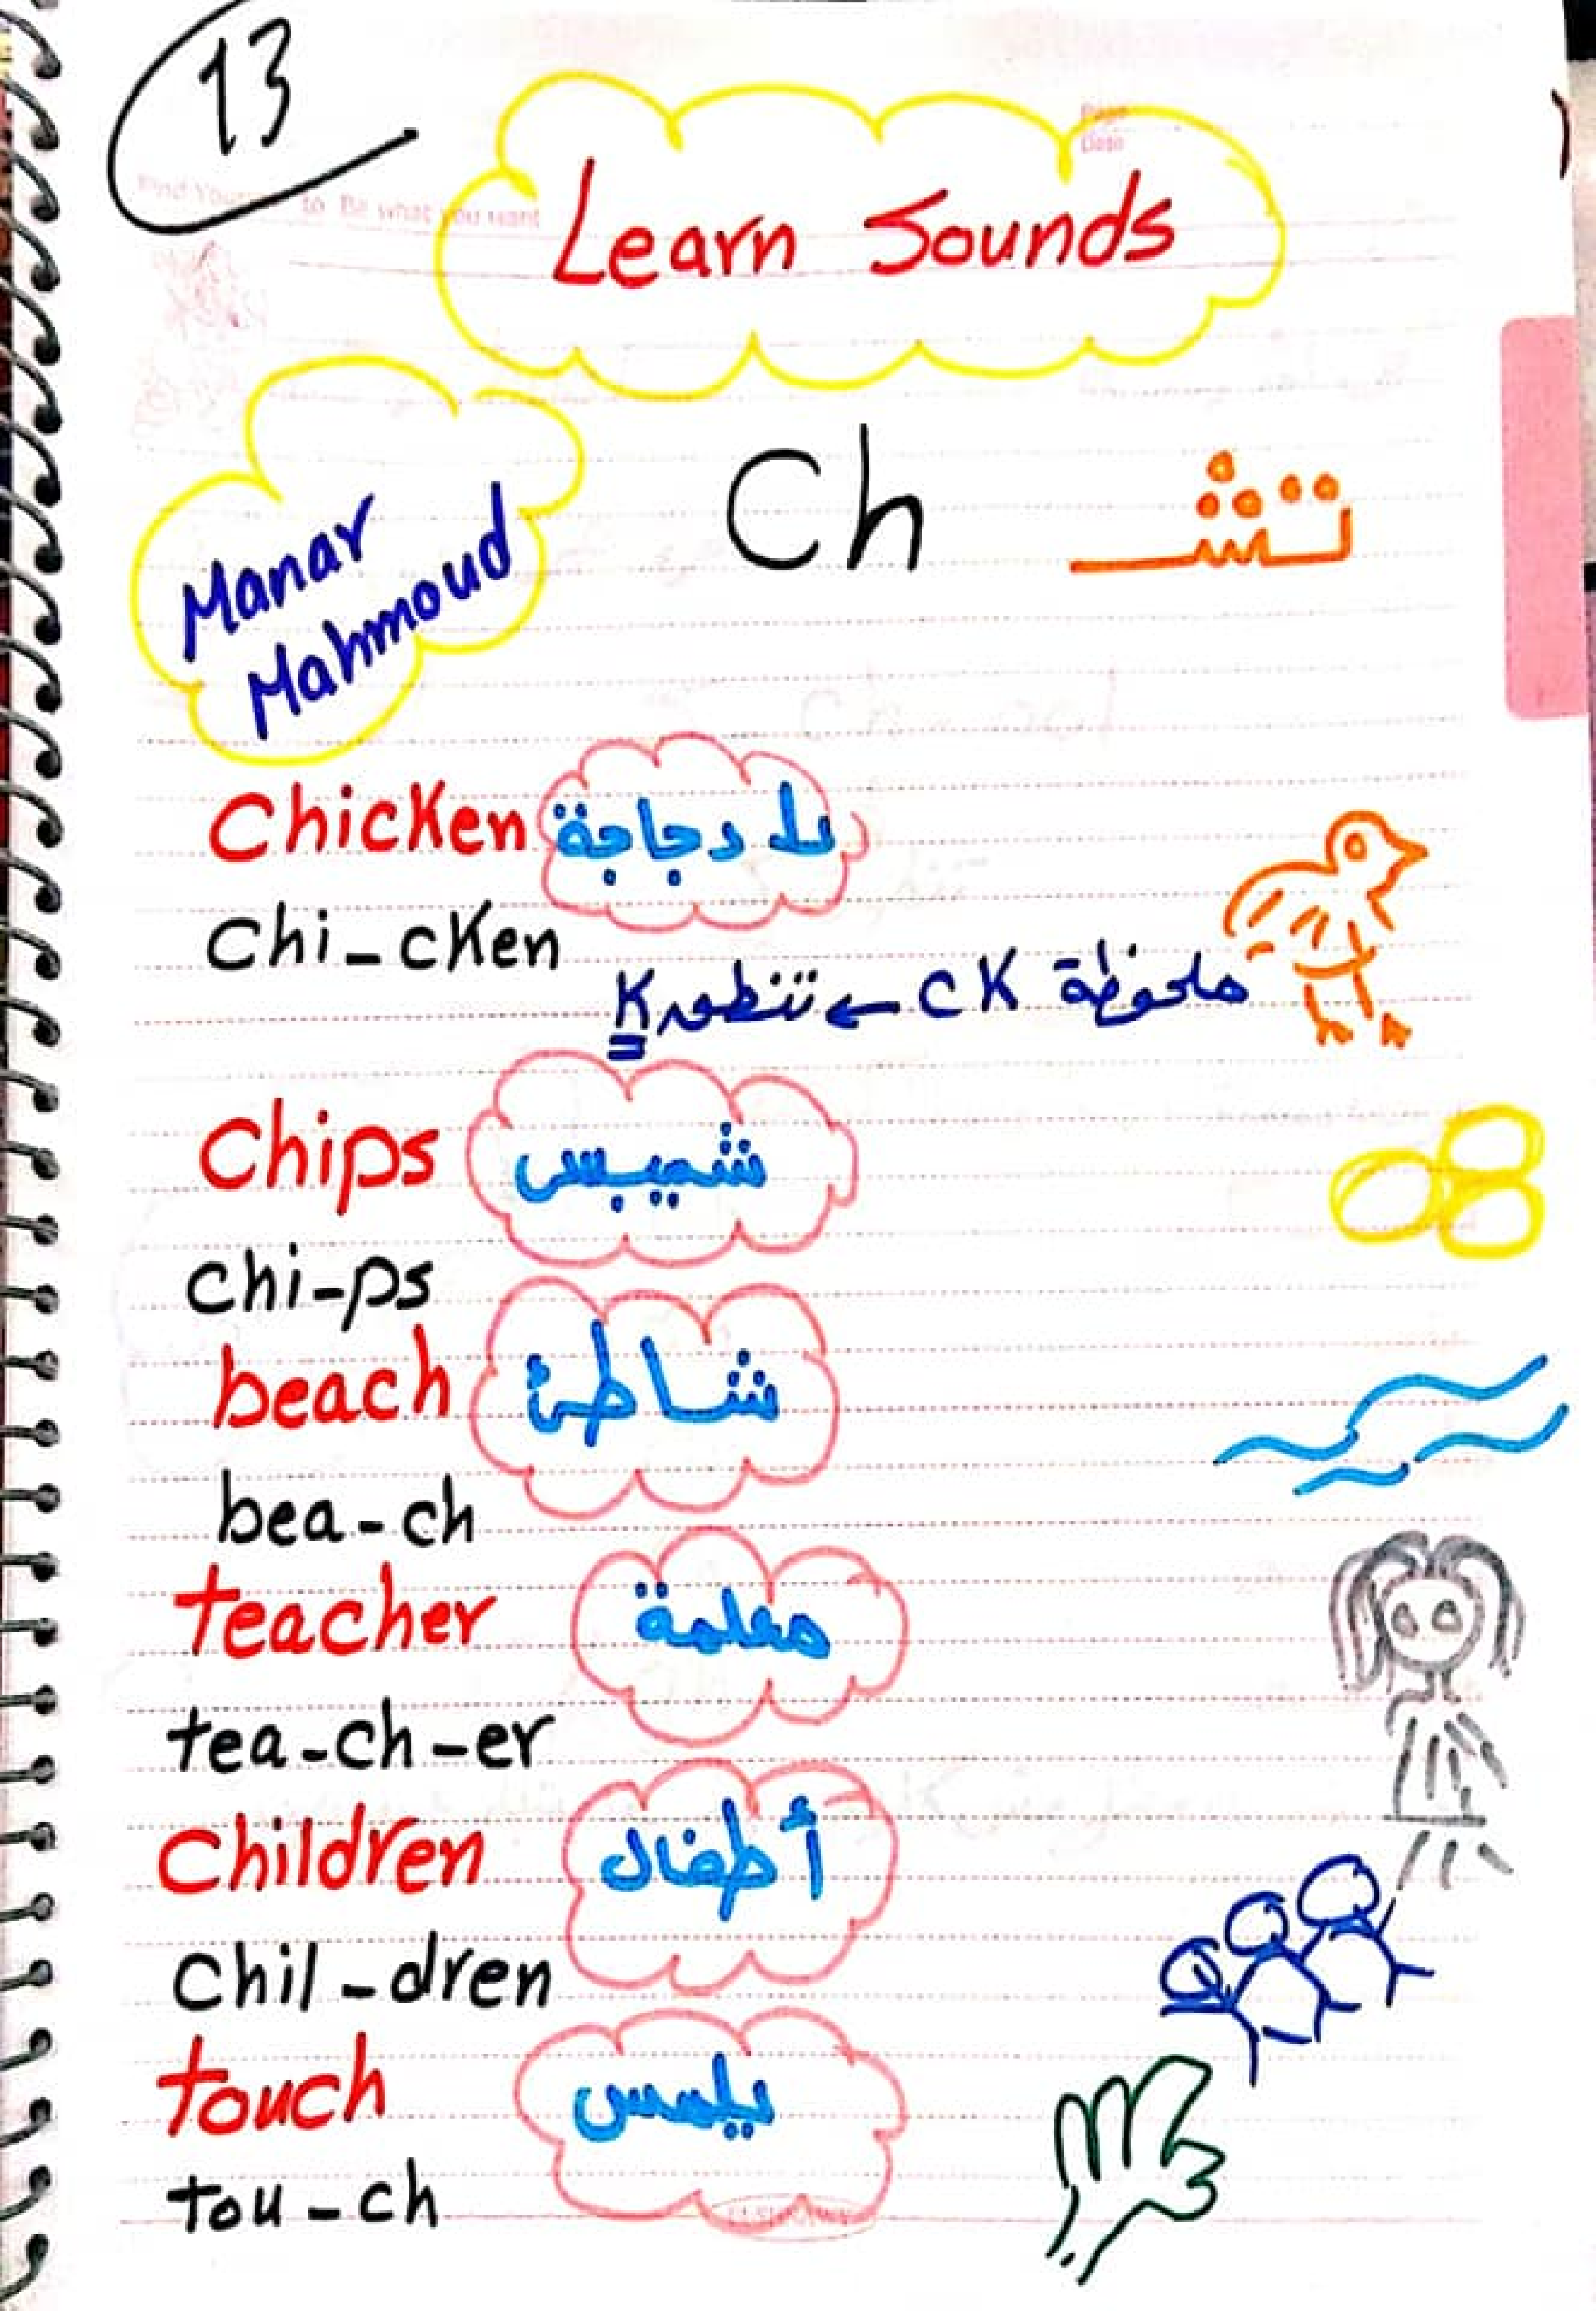 13
Page
Date
to Be what you want
Learn Sounds
Ch تشـ
Manar
Mahmoud
Chicken دجاجة
Chi-cken
ملحوظة CK ← تنطق K
Chips شيبس
chi-ps
beach شاطئ
bea-ch
teacher معلمة
tea-ch-er
Children أطفال
Chil-dren
touch يلمس
tou-ch